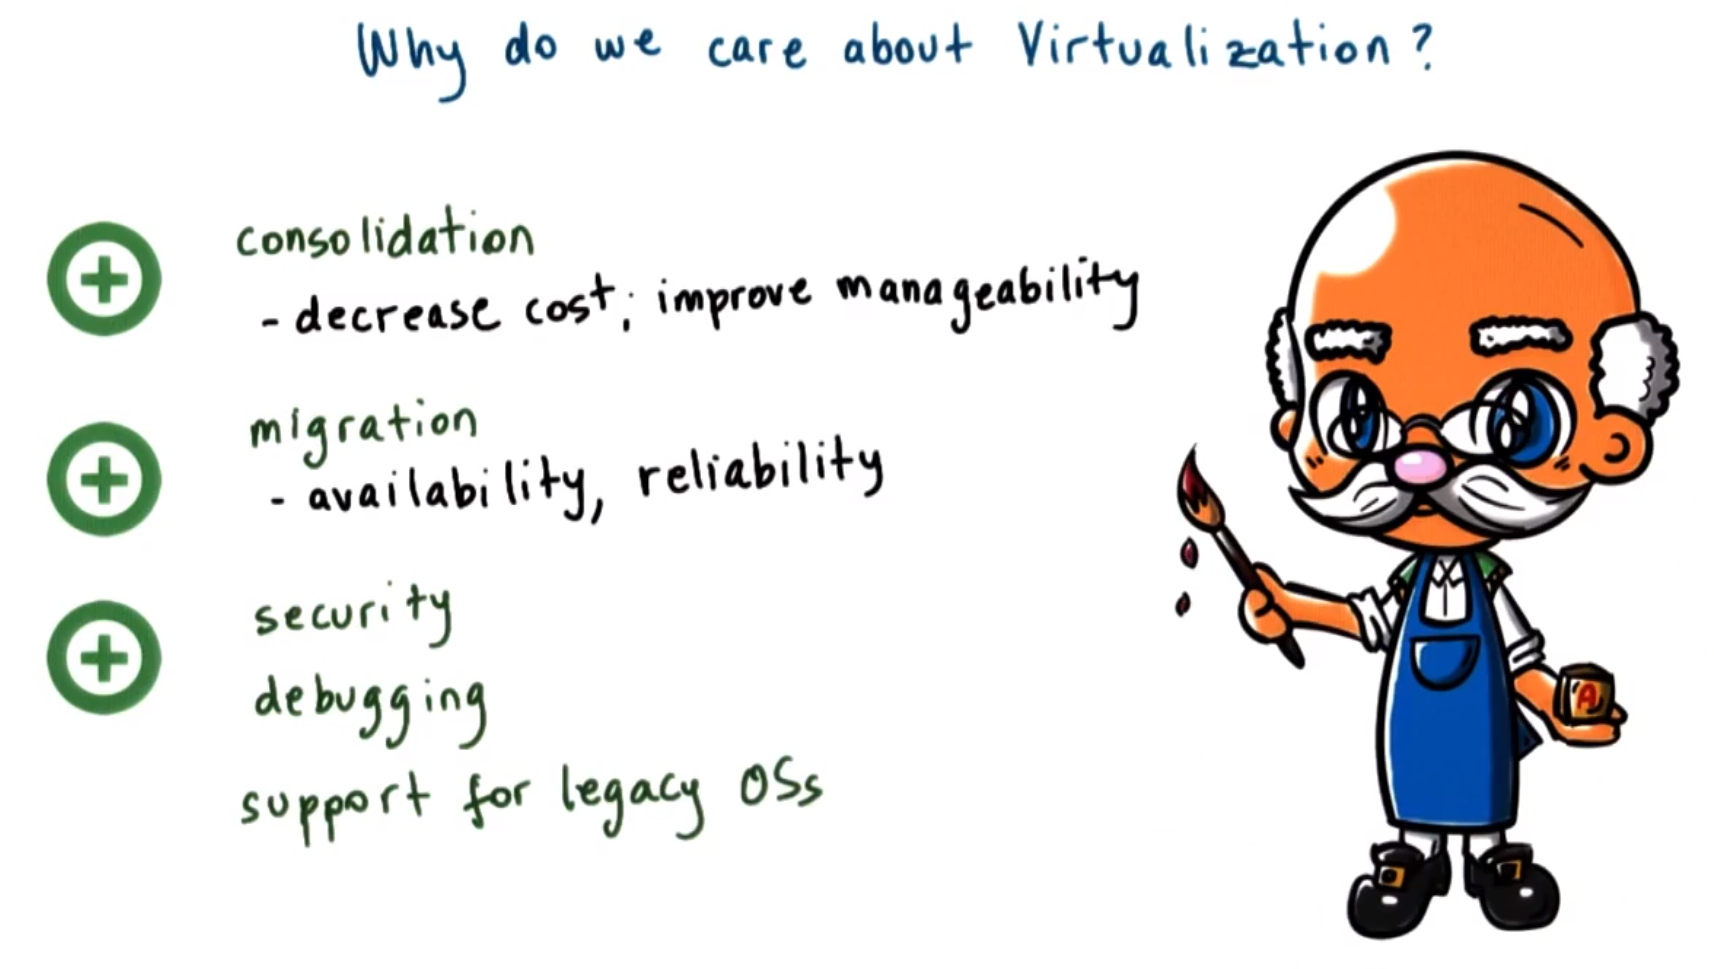 Why do we care about Virtualization?
consolidation
- decrease cost; improve manageability
migration
- availability, reliability
security
debugging
support for legacy OSs
A